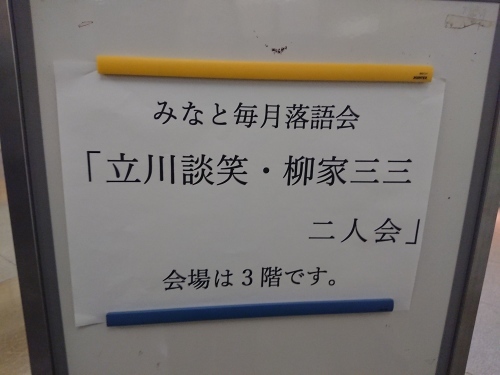 みなと毎月落語会
「立川談笑・柳家三三
二人会」
会場は３階です。